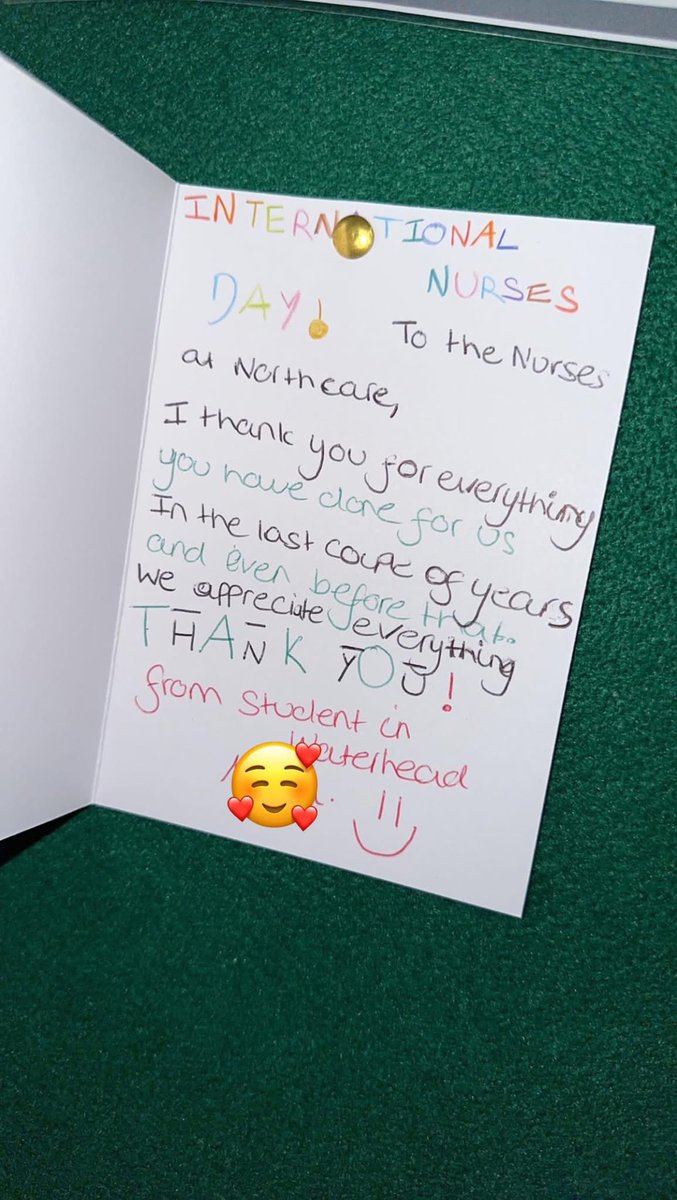 INTERNATIONAL
NURSES
DAY!
To the Nurses
at Northcare,
I thank you for everything
you have done for us
In the last coupe of years
and even before that..
We appreciate everything
THANK YOU!
from Student in
Waterhead